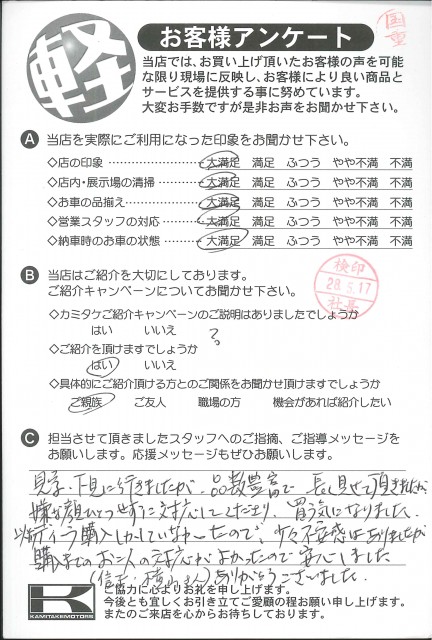 国重
軽
お客様アンケート
当店では、お買い上げ頂いたお客様の声を可能
な限り現場に反映し、お客様により良い商品と
サービスを提供する事に努めています。
大変お手数ですが是非お声をお聞かせ下さい。
A 当店を実際にご利用になった印象をお聞かせ下さい。
◇店の印象 ‥‥‥‥‥‥‥ 大満足 満足 ふつう やや不満 不満
◇店内・展示場の清掃‥‥‥‥ 大満足 満足 ふつう やや不満 不満
◇お車の品揃え‥‥‥‥‥‥ 大満足 満足 ふつう やや不満 不満
◇営業スタッフの対応‥‥‥‥ 大満足 満足 ふつう やや不満 不満
◇納車時のお車の状態‥‥‥‥ 大満足 満足 ふつう やや不満 不満
B 当店はご紹介を大切にしてあります。
ご紹介キャンペーンについてお聞かせ下さい。
検印
28.5.17
社長
◇カミタケご紹介キャンペーンのご説明はありましたでしょうか
はい いいえ ?
◇ご紹介を頂けますでしょうか
はい いいえ
◇具体的にご紹介頂ける方とのご関係をお聞かせ頂けますでしょうか
ご親族 ご友人 職場の方 機会があれば紹介したい
C 担当させて頂きましたスタッフへのご指摘、ご指導メッセージを
お願いします。応援メッセージもぜひお願いします。
見学、下見に行きましたが、品数豊富で 長く見せて頂きましたが、
嫌な顔ひとつせずに対応してくださり、買う気になりました。
ディーラー購入しかしていなかったので、少々不安感はありましたが
購入までのお二人の対応がよかったので安心しました
ありがとうございました。
K
KAMITAKEMOTORS
ご協力に心よりお礼を申し上げます。
今後とも宜しくお引き立てご愛顧の程お願い申し上げます。
またのご来店を心からお待ちしております。